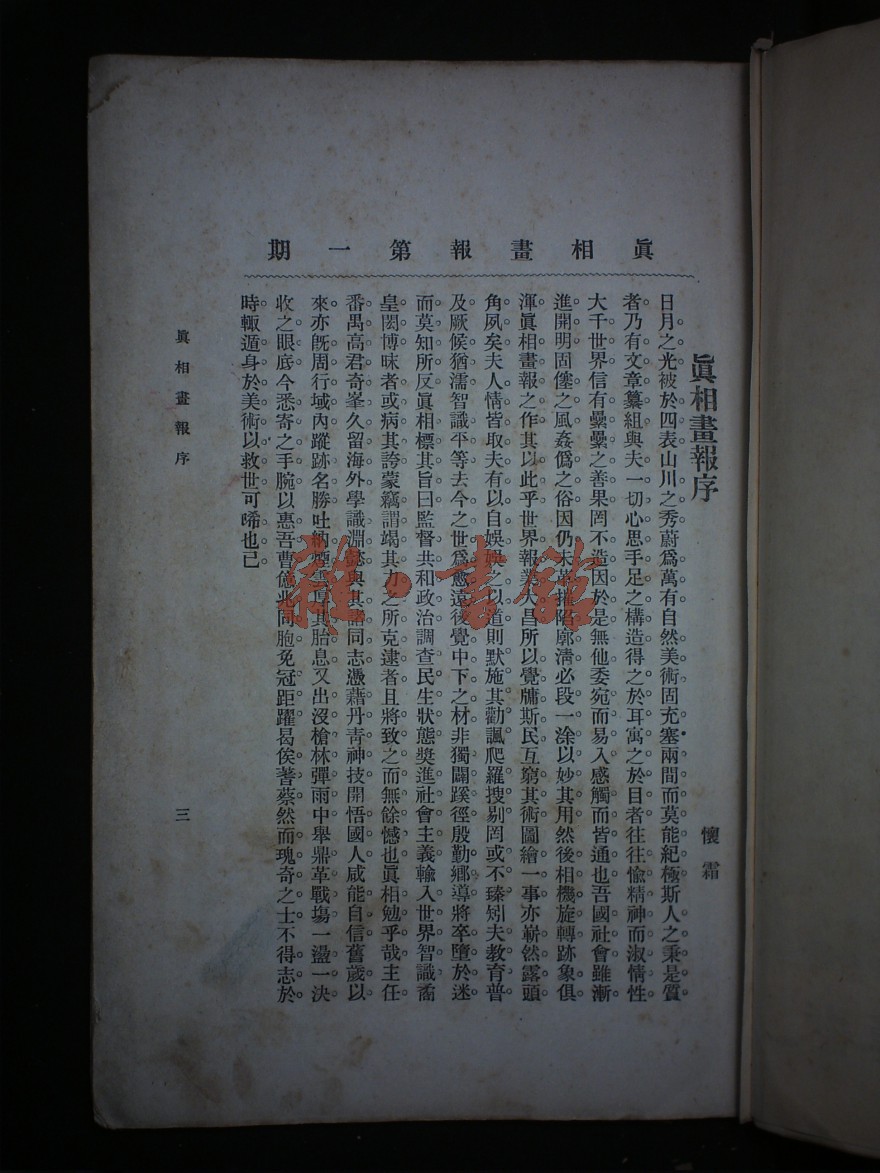 眞相畫報第一期
眞相畫報序
懷霜
日月之光。被於四表。山川之秀。蔚爲萬有。自然美術。固充塞兩間。而莫能紀極。斯人之秉是質
者。乃有文章纂組。與夫一切心思手足之構造。得之於耳。寓之於目者。往往愉精神而淑情性。
大千世界。信有纍纍之善果。罔不造因於是。無他。委宛而易入。感觸而皆通也。吾國社會。雖漸
進開明。固僿之風。姦僞之俗。因仍未革。摧陷廓淸。必段一涂以妙其用。然後相機旋轉。跡象俱
渾。眞相畫報之作。其以此乎。世界報業大昌。所以覺牖斯民。互窮其術。圖繪一事。亦嶄然露頭
角夙矣。夫人情皆取夫有以自娛。娛之以道。則默施其勸諷。爬羅搜剔。罔或不臻。矧夫敎育普
及。厥候猶濡。智識平等。去今之世爲愈遠。後覺中下之材。非獨闢蹊徑。殷勤鄉導。將卒墮於迷
而莫知所反。眞相標其旨曰。監督共和政治。調查民生狀態。奬進社會主義。輸入世界智識。矞
皇閎博。昧者或病其誇。蒙竊謂竭其力之所克逮者。且將致之而無餘憾也。眞相勉乎哉。主任
番禺高君奇峯。久留海外。學識淵懿。與其諸同志。憑藉丹靑神技。開悟國人。咸能自信。舊歲以
來。亦旣周行域內。蹤跡名勝。吐納煙雲。厚其胎息。又出沒槍林彈雨中。舉鼎革戰塲一盪一決。
收之眼底。今悉寄之手腕。以惠吾曹。億兆同胞。免冠距躍。曷俟蓍蔡。然而瑰奇之士。不得志於
時。輙遁身於美術以救世。可唏也已。
眞相畫報序
三
雜·書館